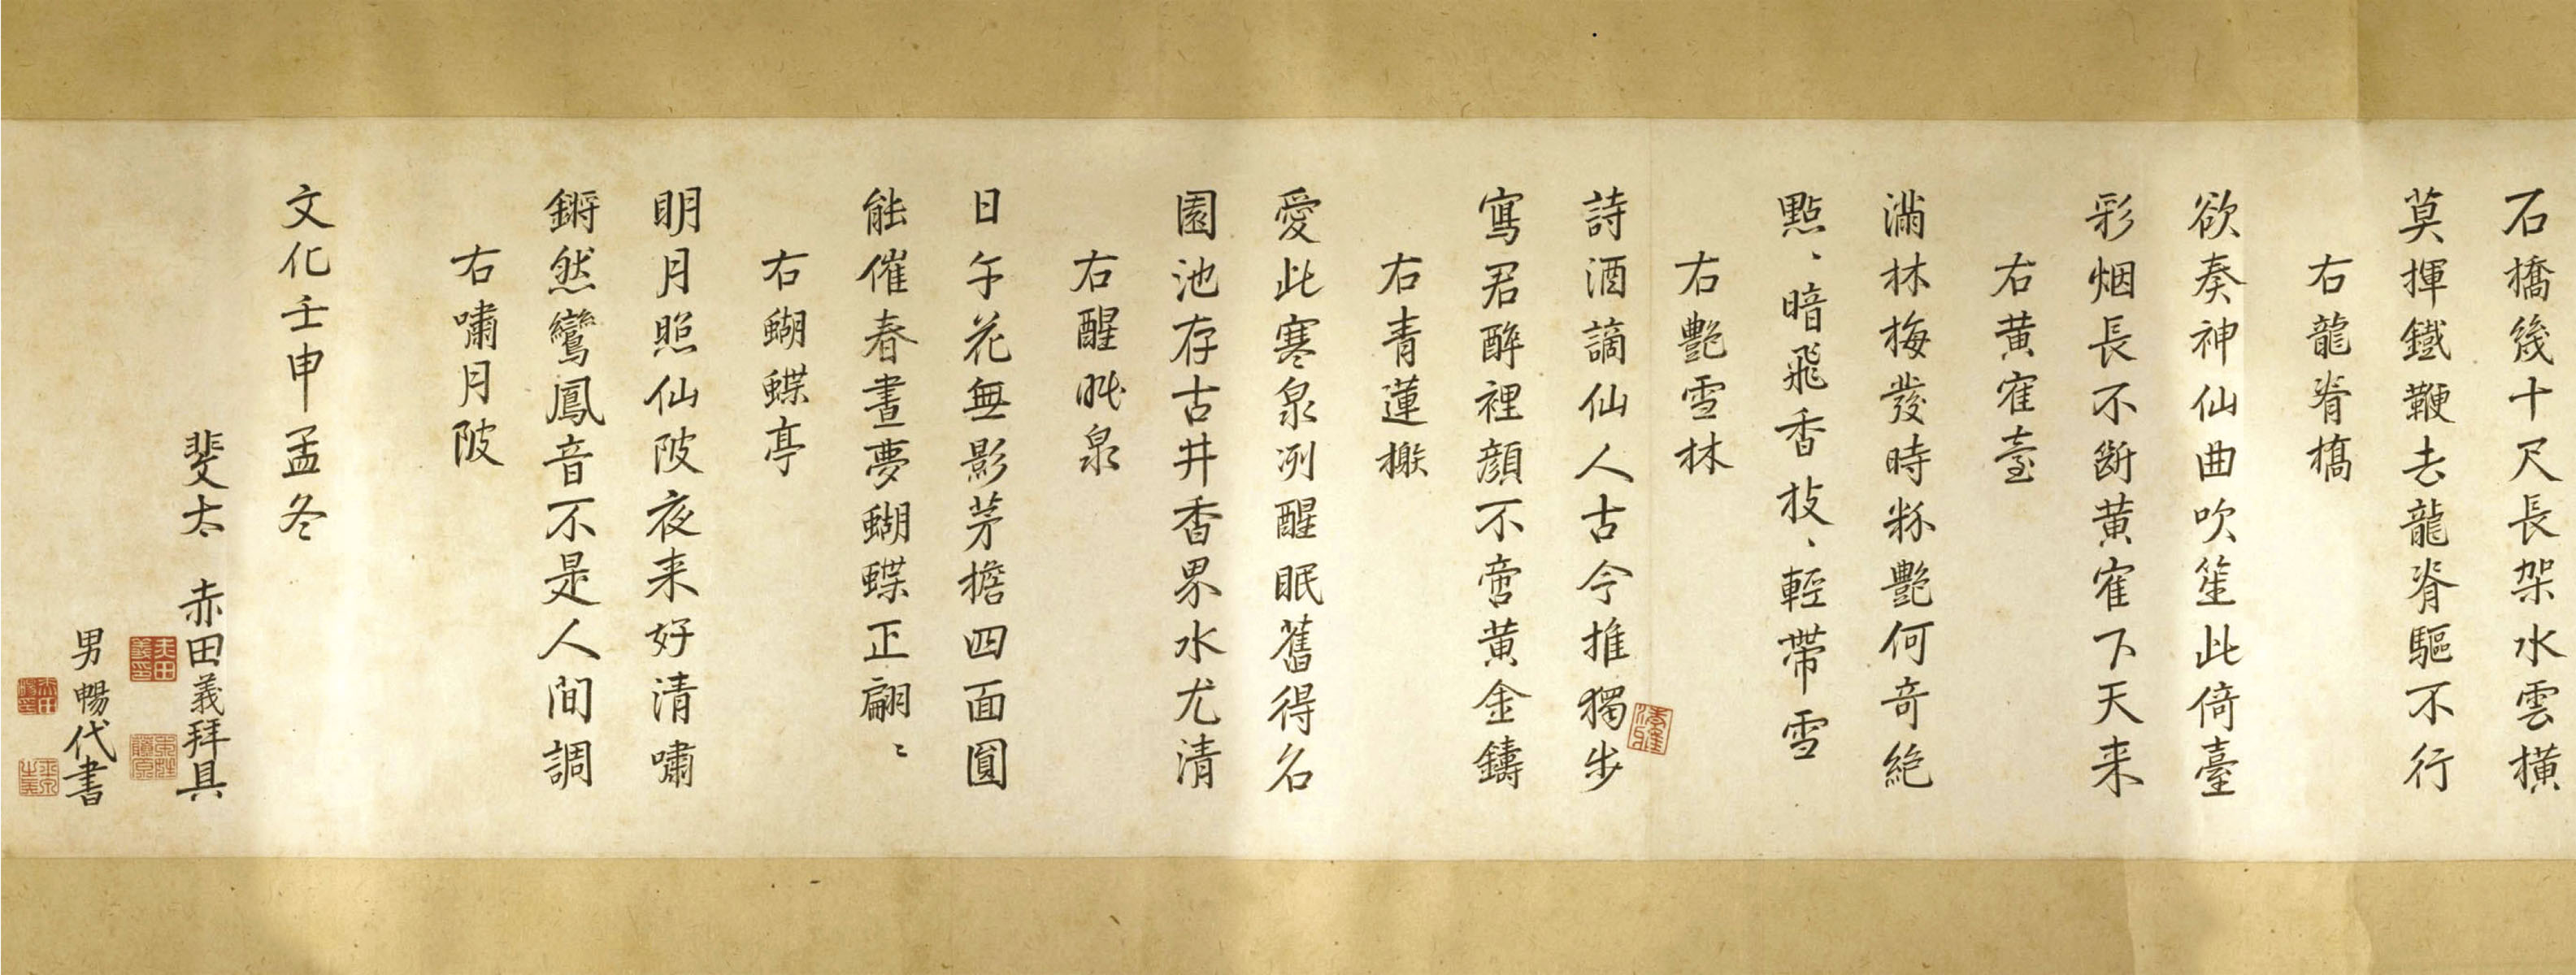 石橋幾十尺長架水雲横
莫揮鐵鞭去龍脊驅不行
右龍脊橋
欲奏神仙曲吹笙此倚臺
彩烟長不断黄隺下天来
右黄隺臺
滿林梅發時粉艶何奇絶
點〻暗飛香枝〻輕帯雪
右艶雪林
詩酒謫仙人古今推獨歩
寫君酔裡顔不啻黄金鑄
右青蓮榭
愛此寒泉冽醒眠舊得名
園池存古井香界水尤清
右醒眠泉
日午花無影茅檐四面圓
能催春晝夢蝴蝶正翩〻
右蝴蝶亭
明月照仙陂夜来好清嘯
鏘然鸞鳳音不是人間調
右嘯月陂
文化壬申孟冬
斐太 赤田義拜具
男暢代書